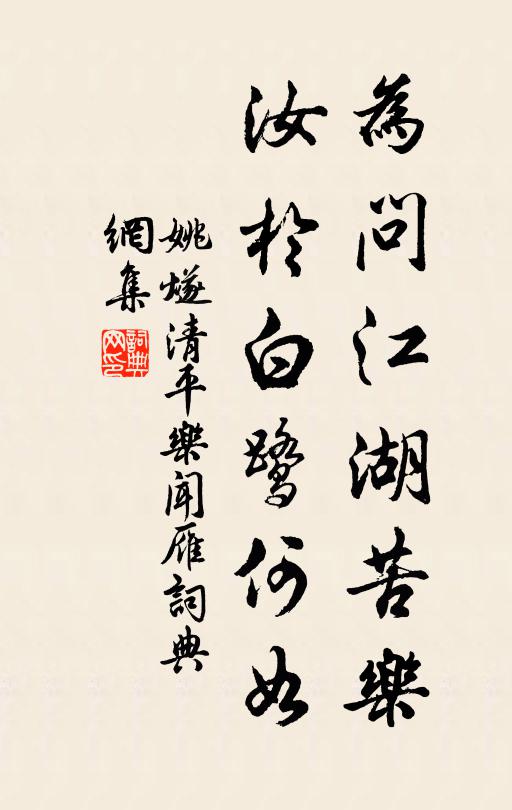 為問江湖苦樂
汝於白鷺何如
姚燧清平樂聞雁詞典
網集
詞典
网印